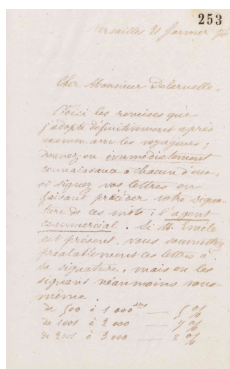 253
Versailles 21 Janvier
Cher Monsieur
Voici les remises que
j'adopte définitivement après
examen avec les voyageurs ;
donnez-en immédiatement
connaissance à chacun d'eux,
et signez vos lettres en
faisant précéder votre signa-
ture de ces mots : l'agent
commercial. Si M. Emile
est présent, vous soumettrez
préalablement ces lettres à
sa signature, mais en les
signant néanmoins vous-
même :
de 500 à 1 000 — 5 %
de 1000 à 2 000 —  %
de  à 3 000 —  %